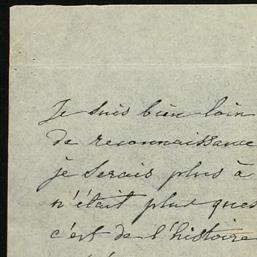 Je suis bien loin
de reconnaissance
je serais plus à
n'était plus ques
c'est de l'histoire